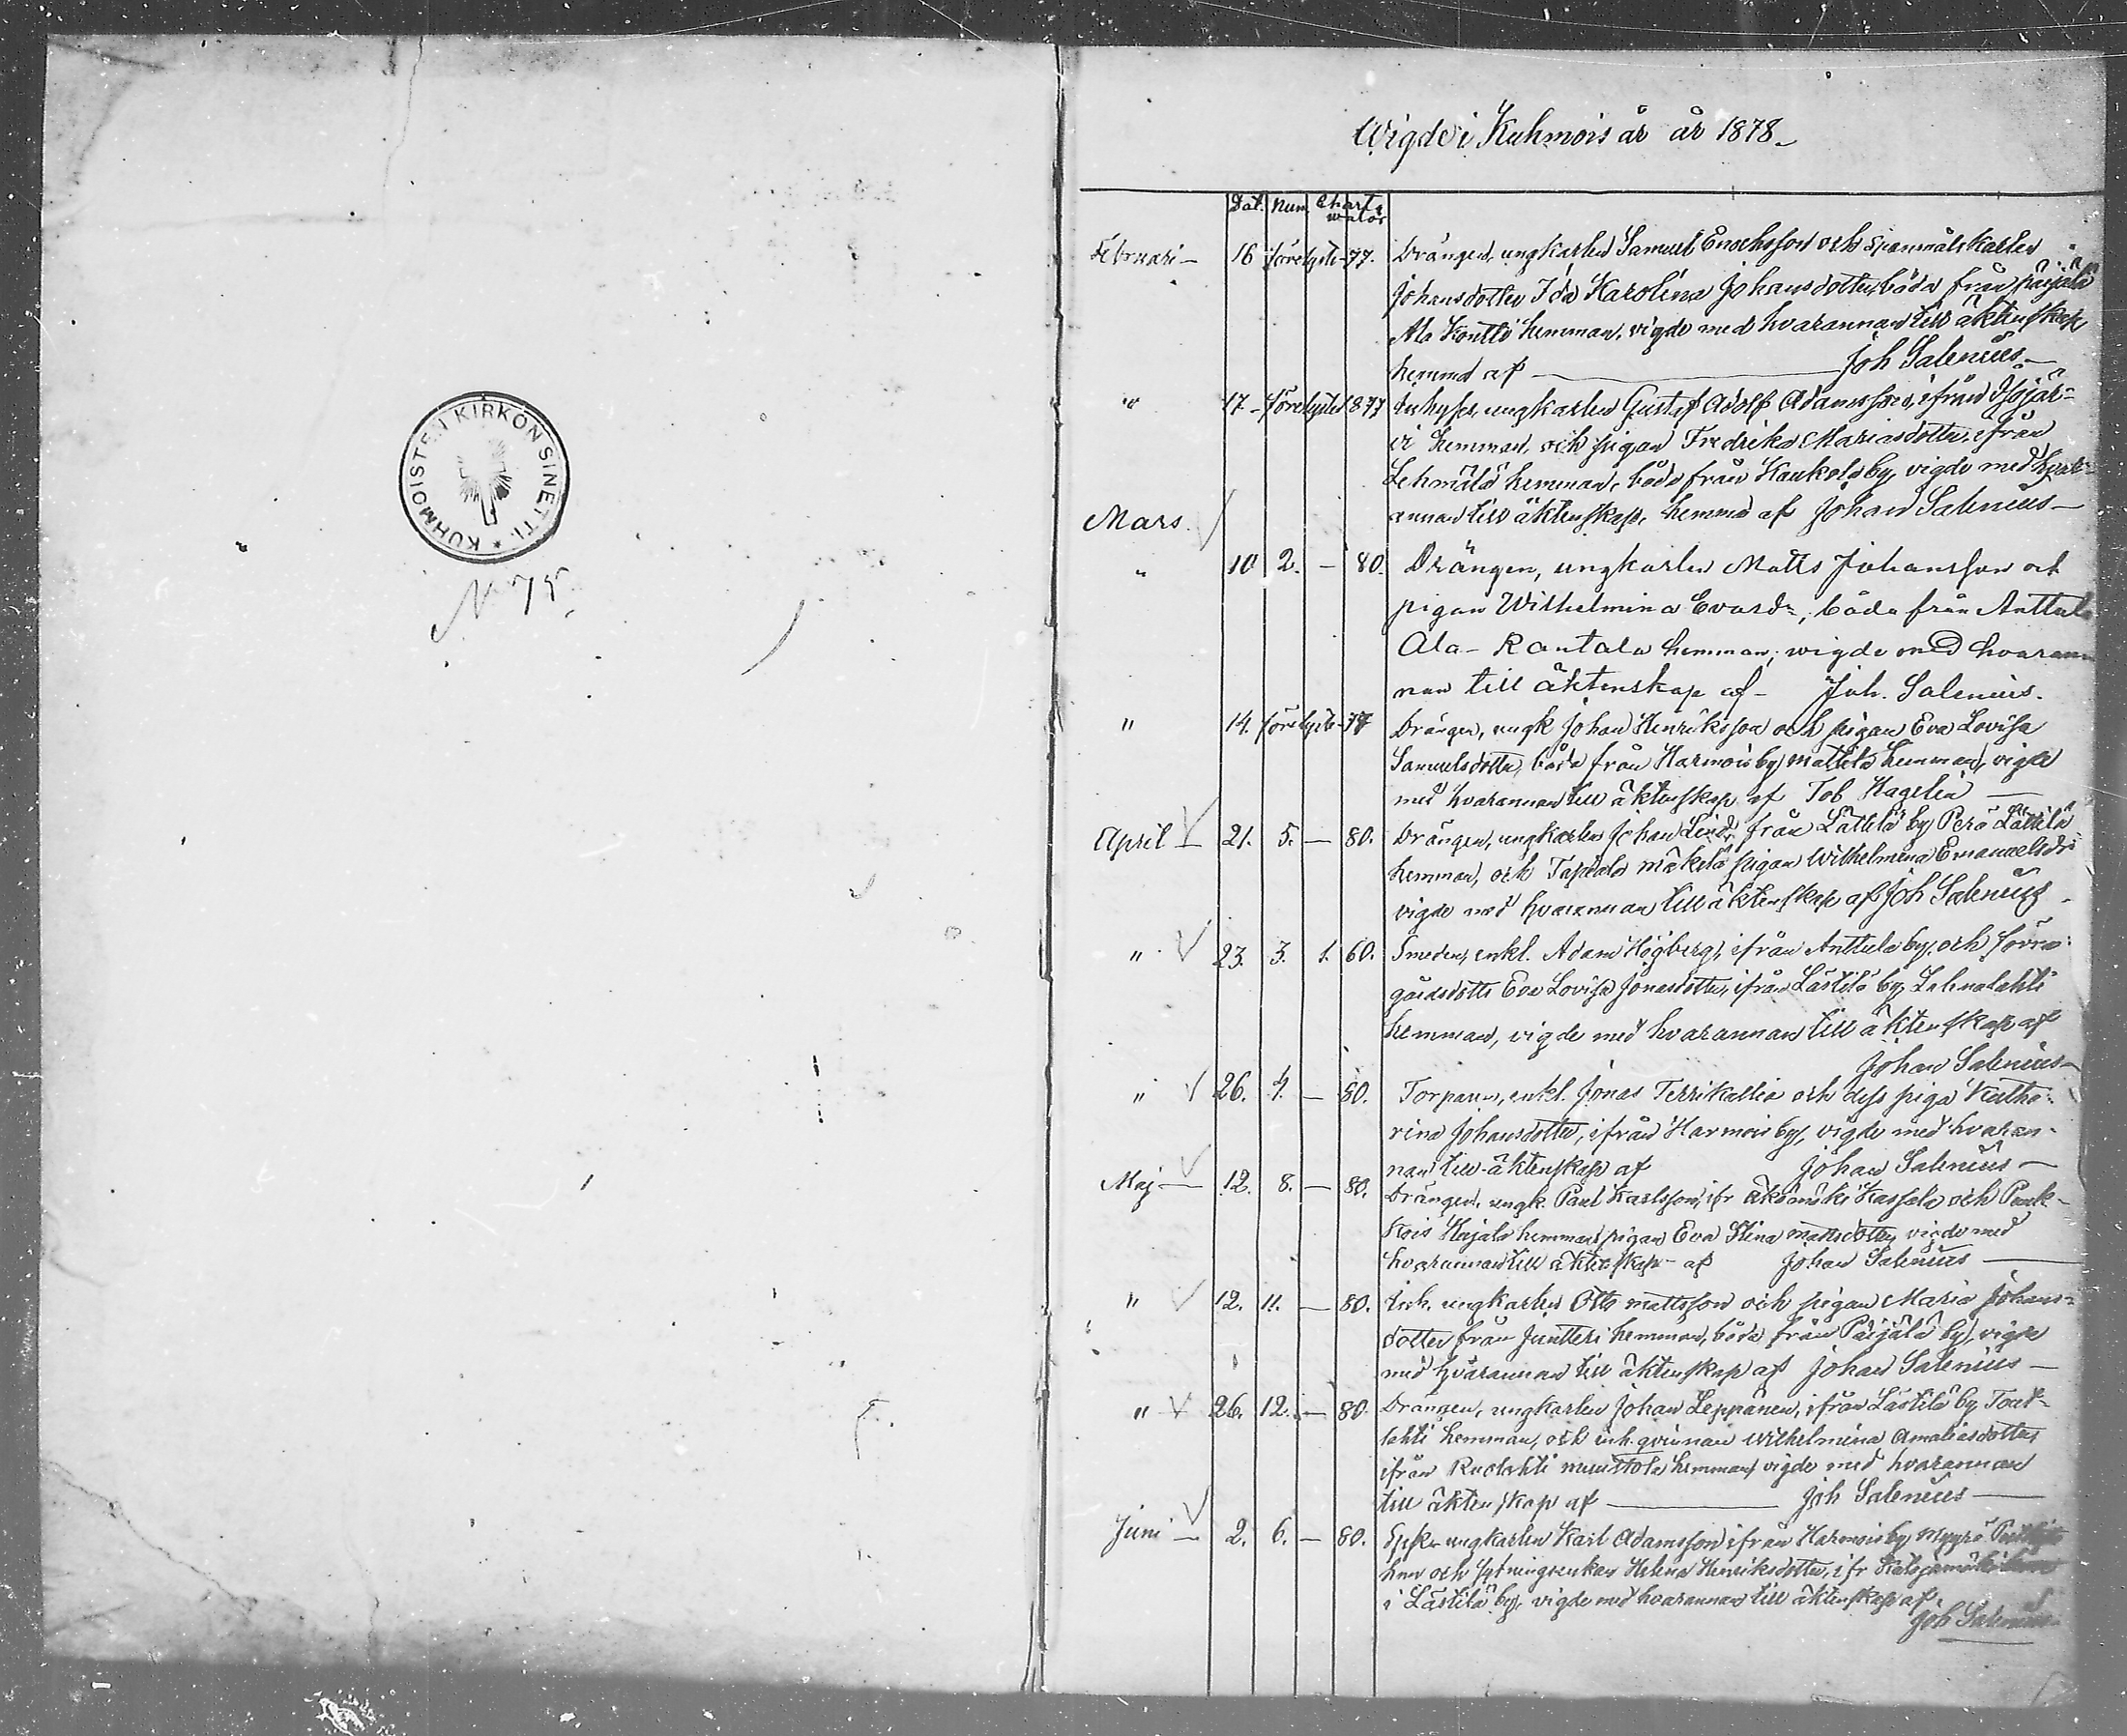 KUHMOISTEN KIRKON SINETTI *
N 75.
Wigde i Kuhmois år år 1878.
Dat. Num Charta walör
Februari — 16 förelyste -77. Drängen, ungkarlen Samuel Enochsson och spanmålskarlen
Johansdotter Ida Karolina Johansdotter, båda från Päijälä
Ala Kontti hemman, vigde med hvarannan till äktenskap
hemma af — Joh Salenius —
" 17 - förelyste 1877 Inhyses, ungkarlen Gustaf Adolf Adamsson, ifrån Isojär-
vi hemman, och pigan Fredrika Mariasdotter, ifrån
Lehmälä hemman, båda från Kaukola by, vigde med hvar-
annan till äktenskap, hemma af Johan Salenius —
Mars.
" 10 2. — 80. Drängen, ungkarlen Matts Johansson och
pigan Wilhelmina Evasdr, båda från Anttula
Ala- Rantala hemman; wigde med hvaran
nan till äktenskap af - Joh. Salenius.
" 14. förelyste -77 Drängen, ungk Johan Henriksson och pigan Eva Lovisa
Samuelsdotter, båda från Harmois by Mattila hemman, vigde
med hvarannan till äktenskap af Tob Hagelin —
April — 21. 5. — 80. Drängen, ungkarlen Johan Lindr från Lättilä by Perä Lättilä
hemman, och Tapiala Mäkelä pigan Wilhelmina Emanuelsdr
vigde med hvarannan till äktenskap af Joh Salenius
" 23. 3. 1. 60. Smeden, enkl. Adam Högberg, ifrån Anttula by, och förra
gårdsdottr Eva Lovisa Jonasdotter, ifrån Lästilä by
hemman, vigde med hvarannan till äktenskap af
Johan Salenius —
" 26. 4. — 80. Torparen, enkl. Jonas Terrikallio och dess piga Katha-
rina Johansdotter, ifrån Harmois by, vigde med hvaran-
nan till äktenskap af Johan Salenius —
Maj — 12. 8. — 80. Drängen, ungk. Paul Karlsson, ifr Kassala och Puuk-
kois Kajala hemman pigan Eva Stina Mattsdotter, vigde med
hvarannan till äktenskap af Johan Salenius —
" 12. 11. — 80. Inh. ungkarlen Otto Mattsson och pigan Maria Johans-
dotter från Juntteri hemman, båda från Päijälä by, vigde
med hvarannan till äktenskap af Johan Salenius —
" 26. 12. — 80. Drängen, ungkarlen Johan Leppänen, ifrån Lästilä by
lahti hemman, och inh. qvinnan Wilhelmina Amaliasdotter,
ifrån Ruolahti hemman, vigde med hvarannan
till äktenskap af — Joh Salenius —
Juni — 2. 6. — 80. ungkarlen Karl Adamsson ifrån Harmois by Myyrä
och sytningsenkan Helena Henriksdotter, ifr
i Lästilä by, vigde med hvarannan till äktenskap af
Joh Salenius